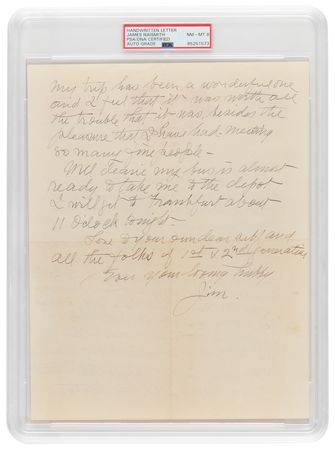 HANDWRITTEN LETTER
JAMES NAISMITH
PSA/DNA CERTIFIED
AUTO GRADE
NM - MT 8
85251573
My trip has been a wonderful one
and I feel that it was worth all
the trouble that it was, besides the
pleasure that I have had meeting
so many fine people -
Well dearie my bus is almost
ready to take me to the depot
I will get to Frankfurt about
11 Oclock tonight.
Love to your own dear self and
all the folks of 1st & 2nd generation
Ever your loving hubby
Jim.